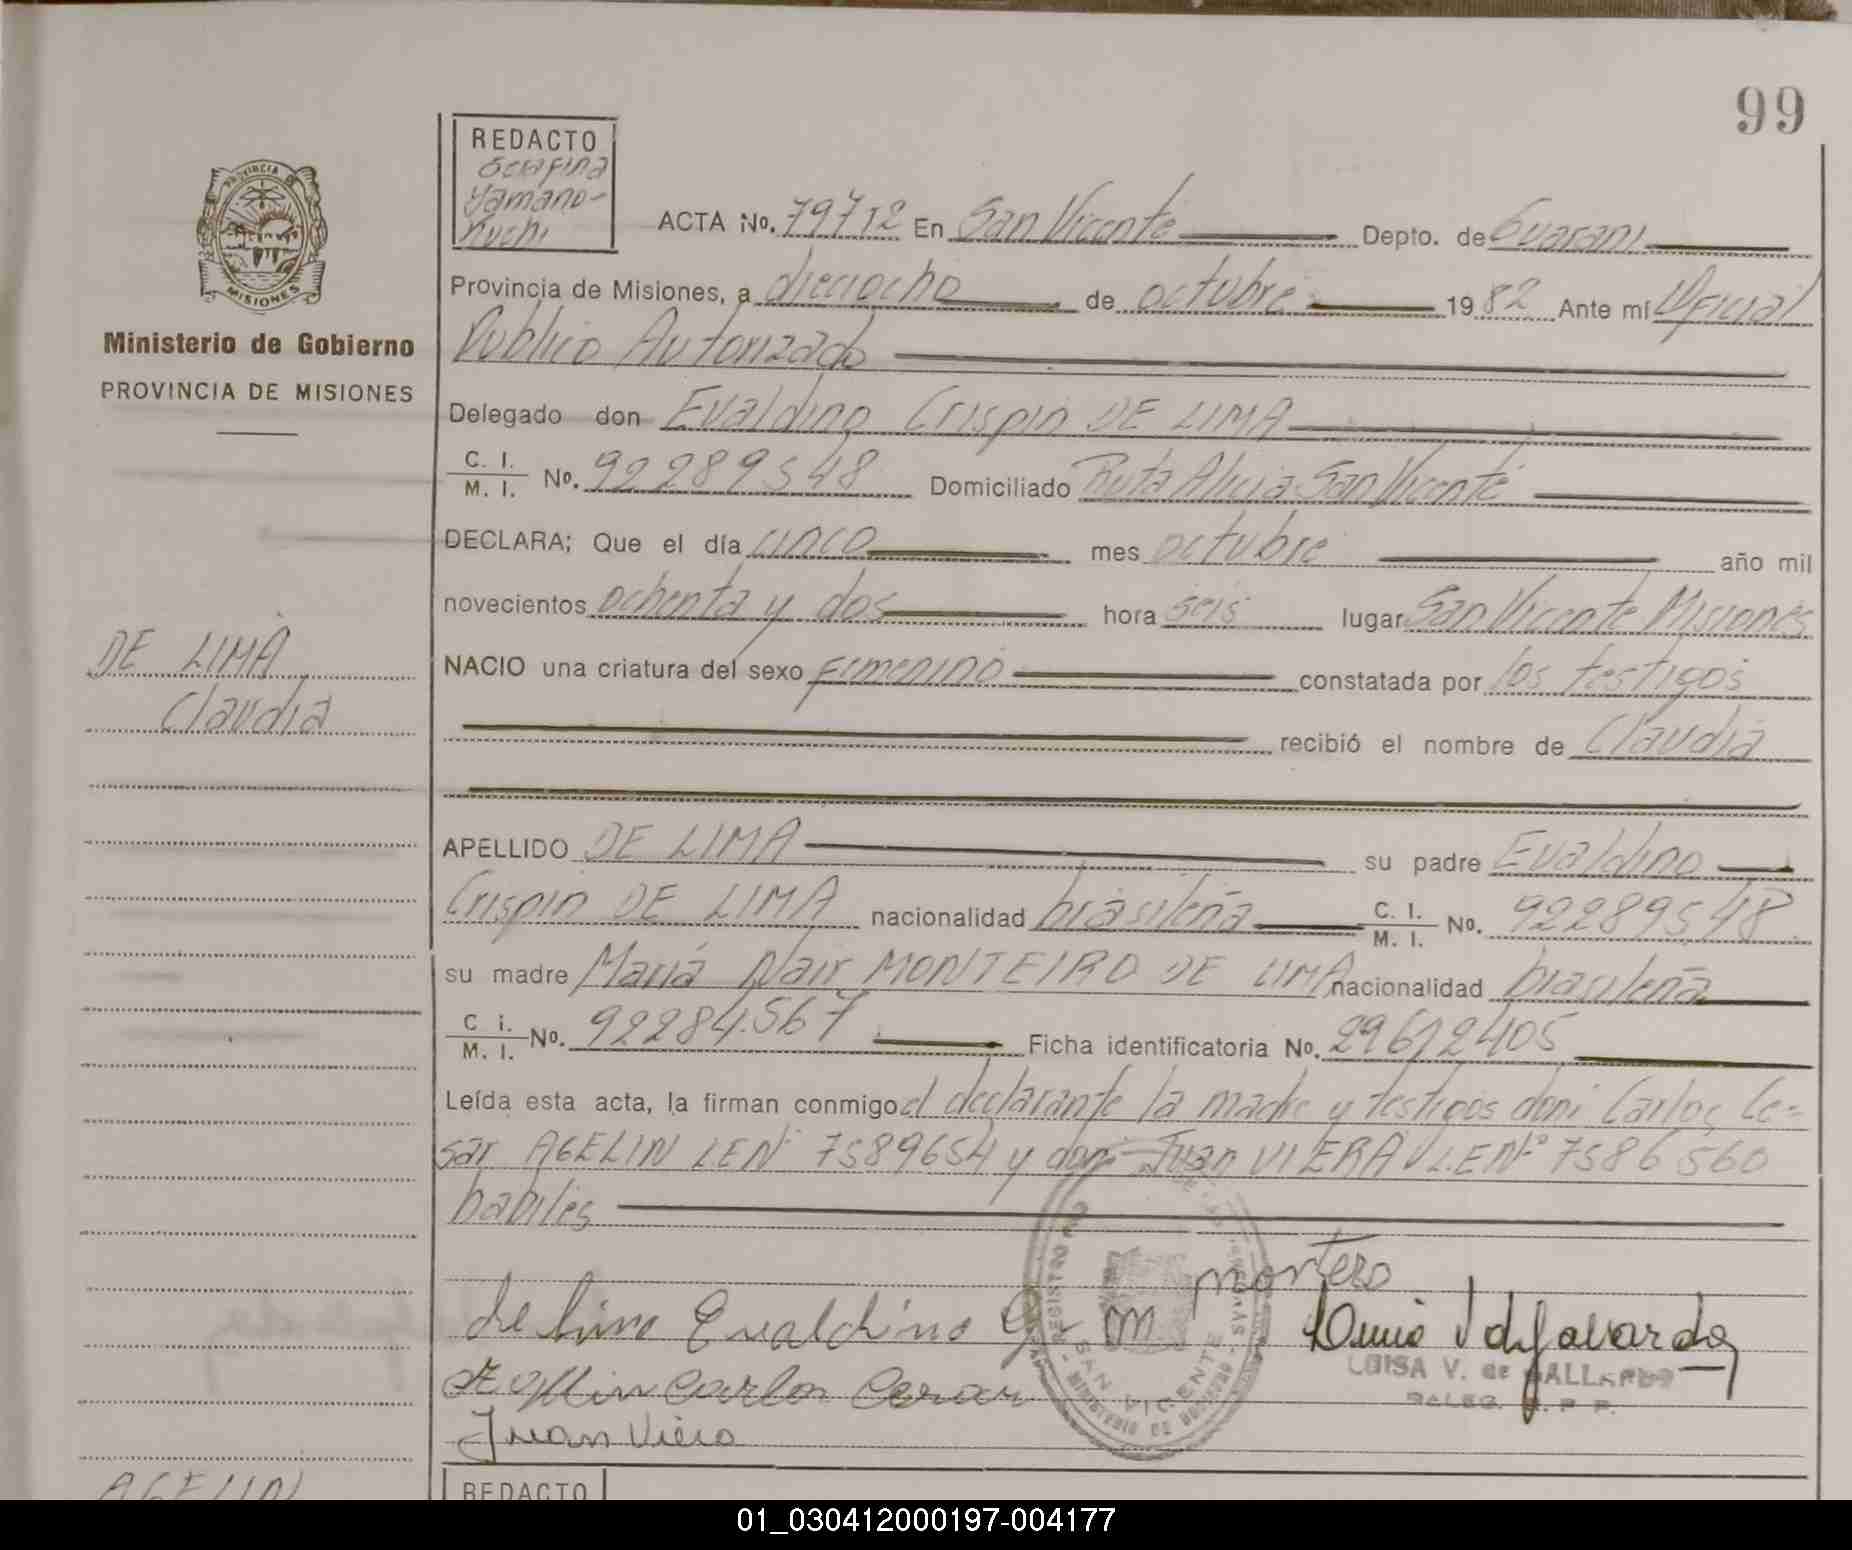 99
REDACTO
Serafina
Yamano-
huchi
PROVINCIA DE
MISIONES
Ministerio de Gobierno
PROVINCIA DE MISIONES
ACTA No. 79712 En San Vicente Depto. de Guarani
Provincia de Misiones, a dieciocho de octubre 1982 Ante mí Oficial
Publico Autorizado
Delegado don Evaldino Crispin DE LIMA
C. I.
M. I. No. 92289548 Domiciliado Ruta Alicia San Vicente
DECLARA; Que el día cinco mes octubre año mil
novecientos ochenta y dos hora seis lugar San Vicente Misiones
NACIO una criatura del sexo femenino constatada por los testigos
recibió el nombre de Claudia
DE LIMA
Claudia
APELLIDO DE LIMA su padre Evaldino
Crispin DE LIMA nacionalidad brasileña C. I.
M. I. No. 92289548
su madre Maria Nair MONTEIRO DE LIMA nacionalidad brasileña
C. i.
M. I. No. 92284.567 Ficha identificatoria No. 29612405
Leída esta acta, la firman conmigo el declarante la madre y testigos don: Carlos Ce-
sar AGELIN L.E.Nº 7589654 y don Juan VIERA L.E.Nº 7586560
habiles
montero
de lima Evaldino
LUISA V. de GALLARDO
DELEG. R. P. P.
Carlos Cesar
Juan Viera
SAN VICENTE
AGELIN
REDACTO
01_030412000197-004177